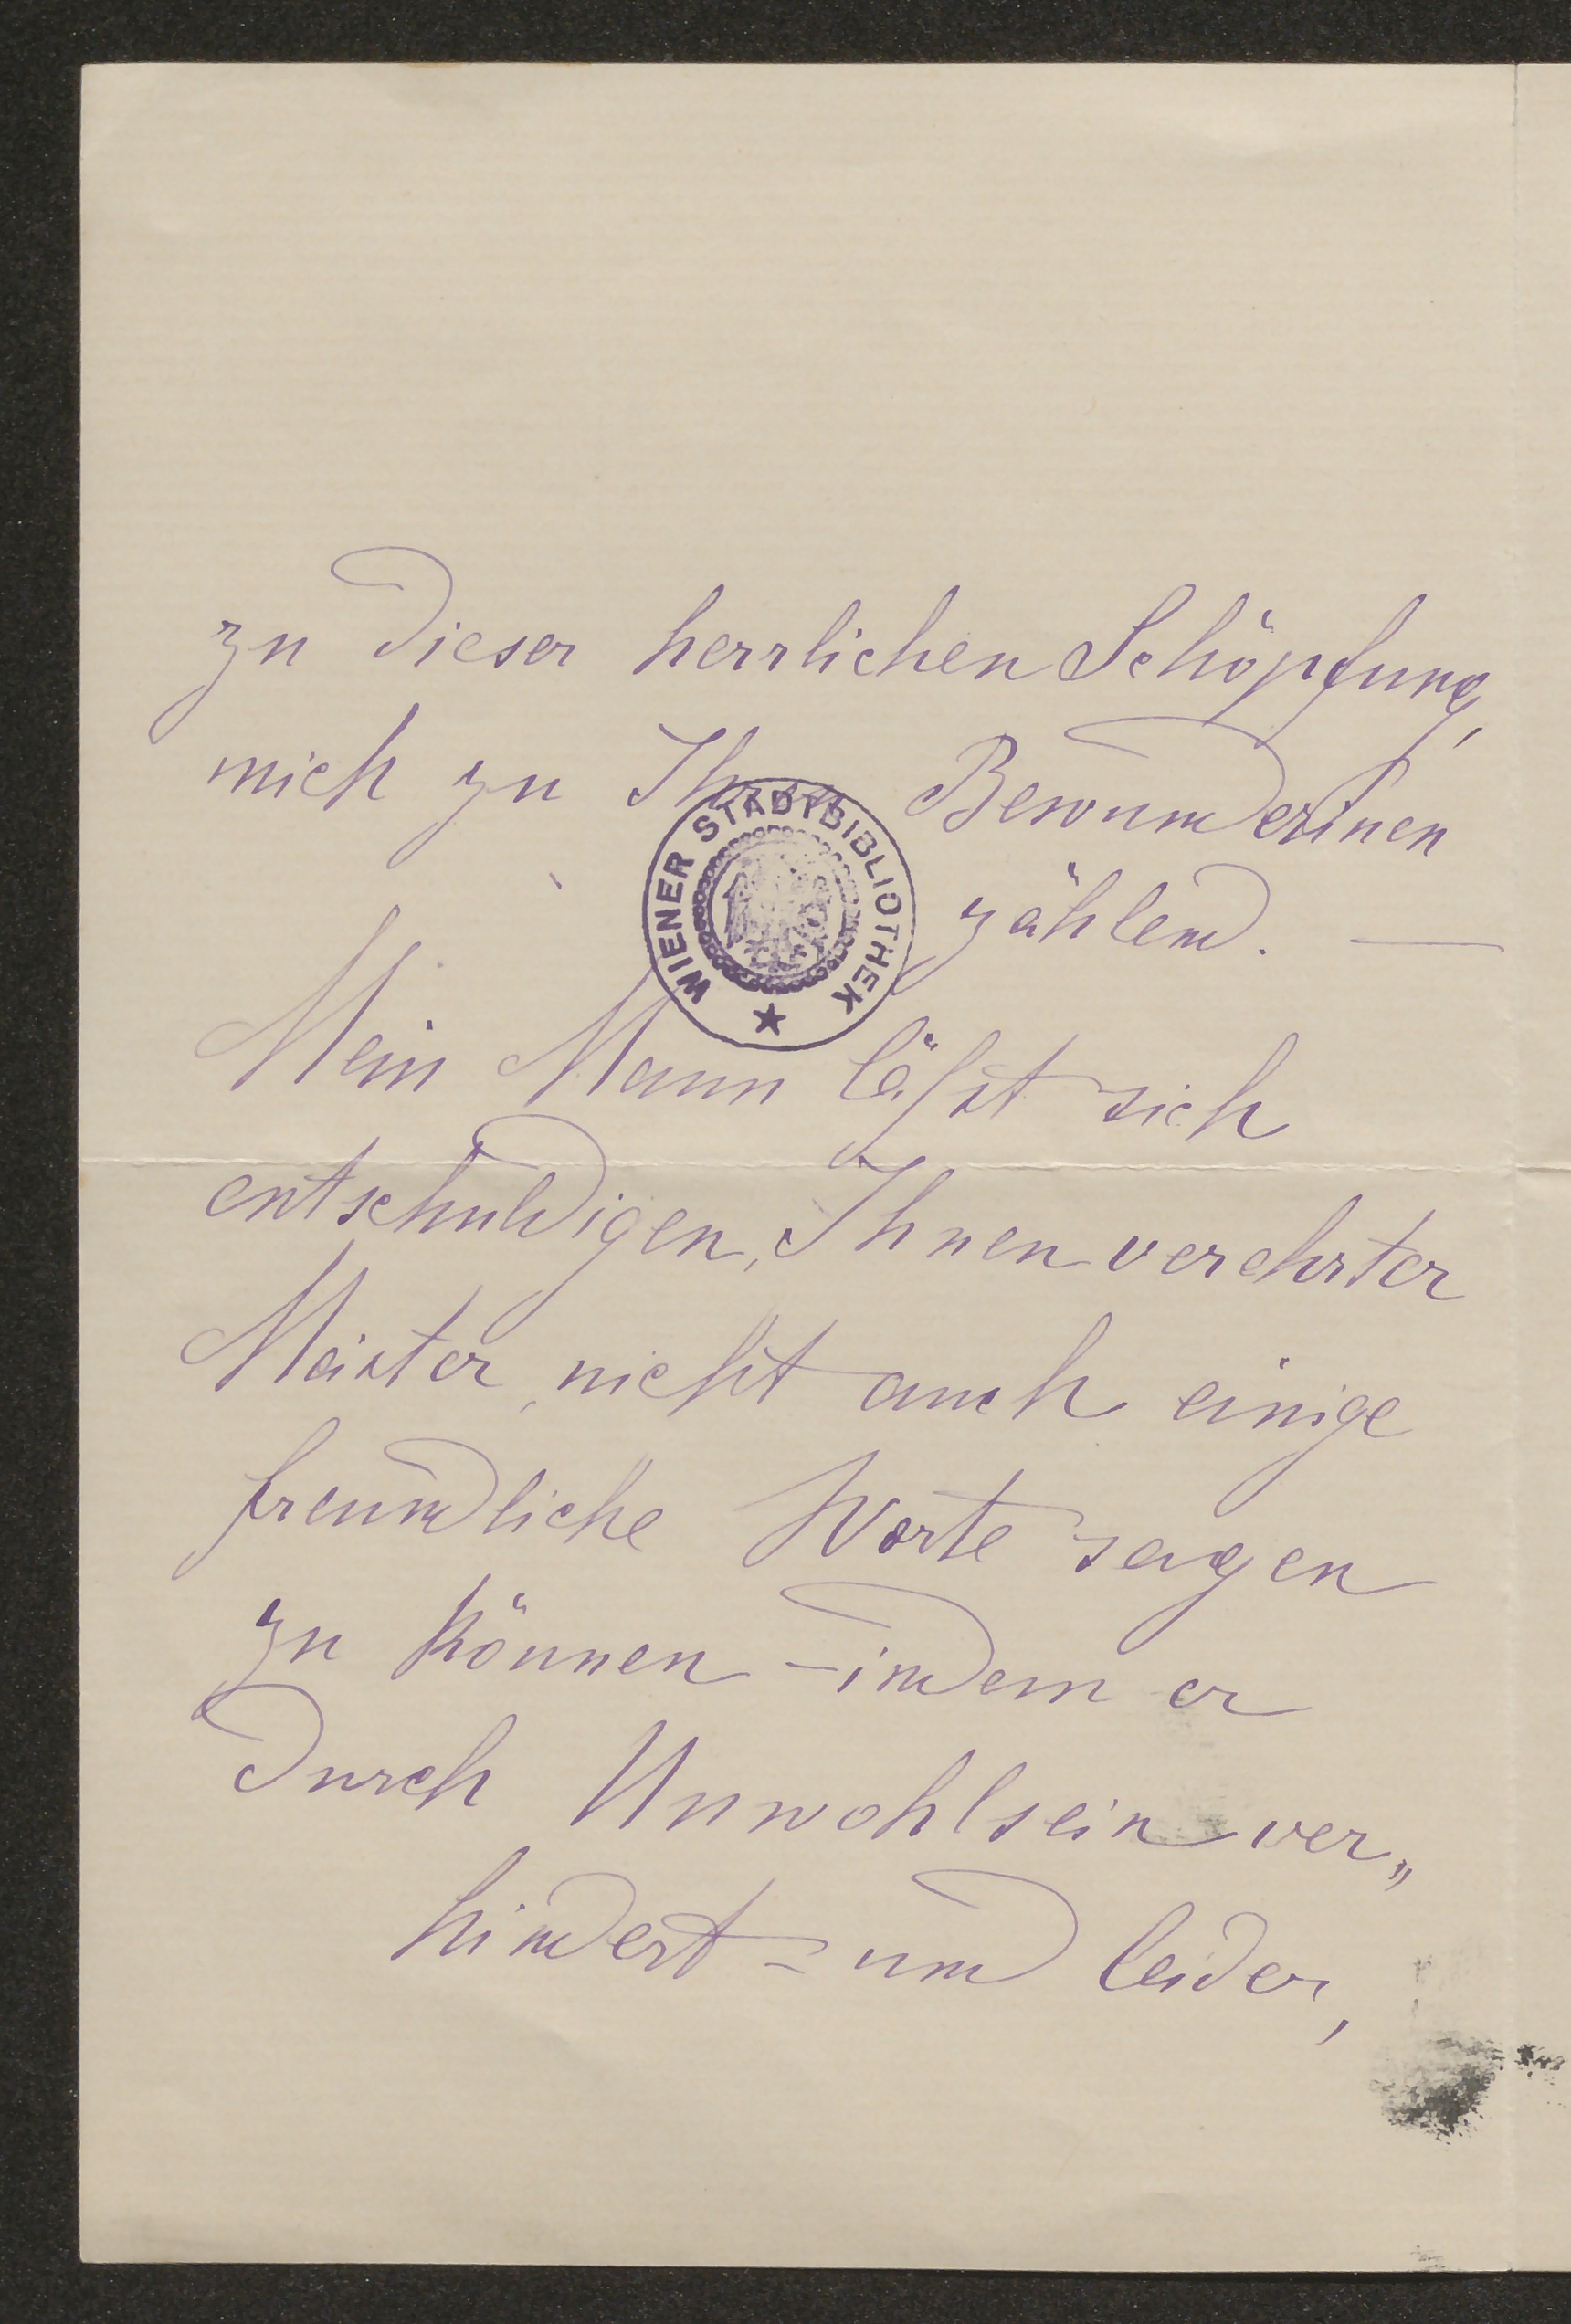 zu dieser herrlichen Schöpfung,
mich zu Ihren Bewunderinen
zählend. —
WIENER STADTBIBLIOTHEK
Mein Mann läßt sich
entschuldigen, Ihnen verehrter
Meister, nicht auch einige
freundliche Worte sagen
zu können – indem er
durch Unwohlsein ver„
hindert = und leider,